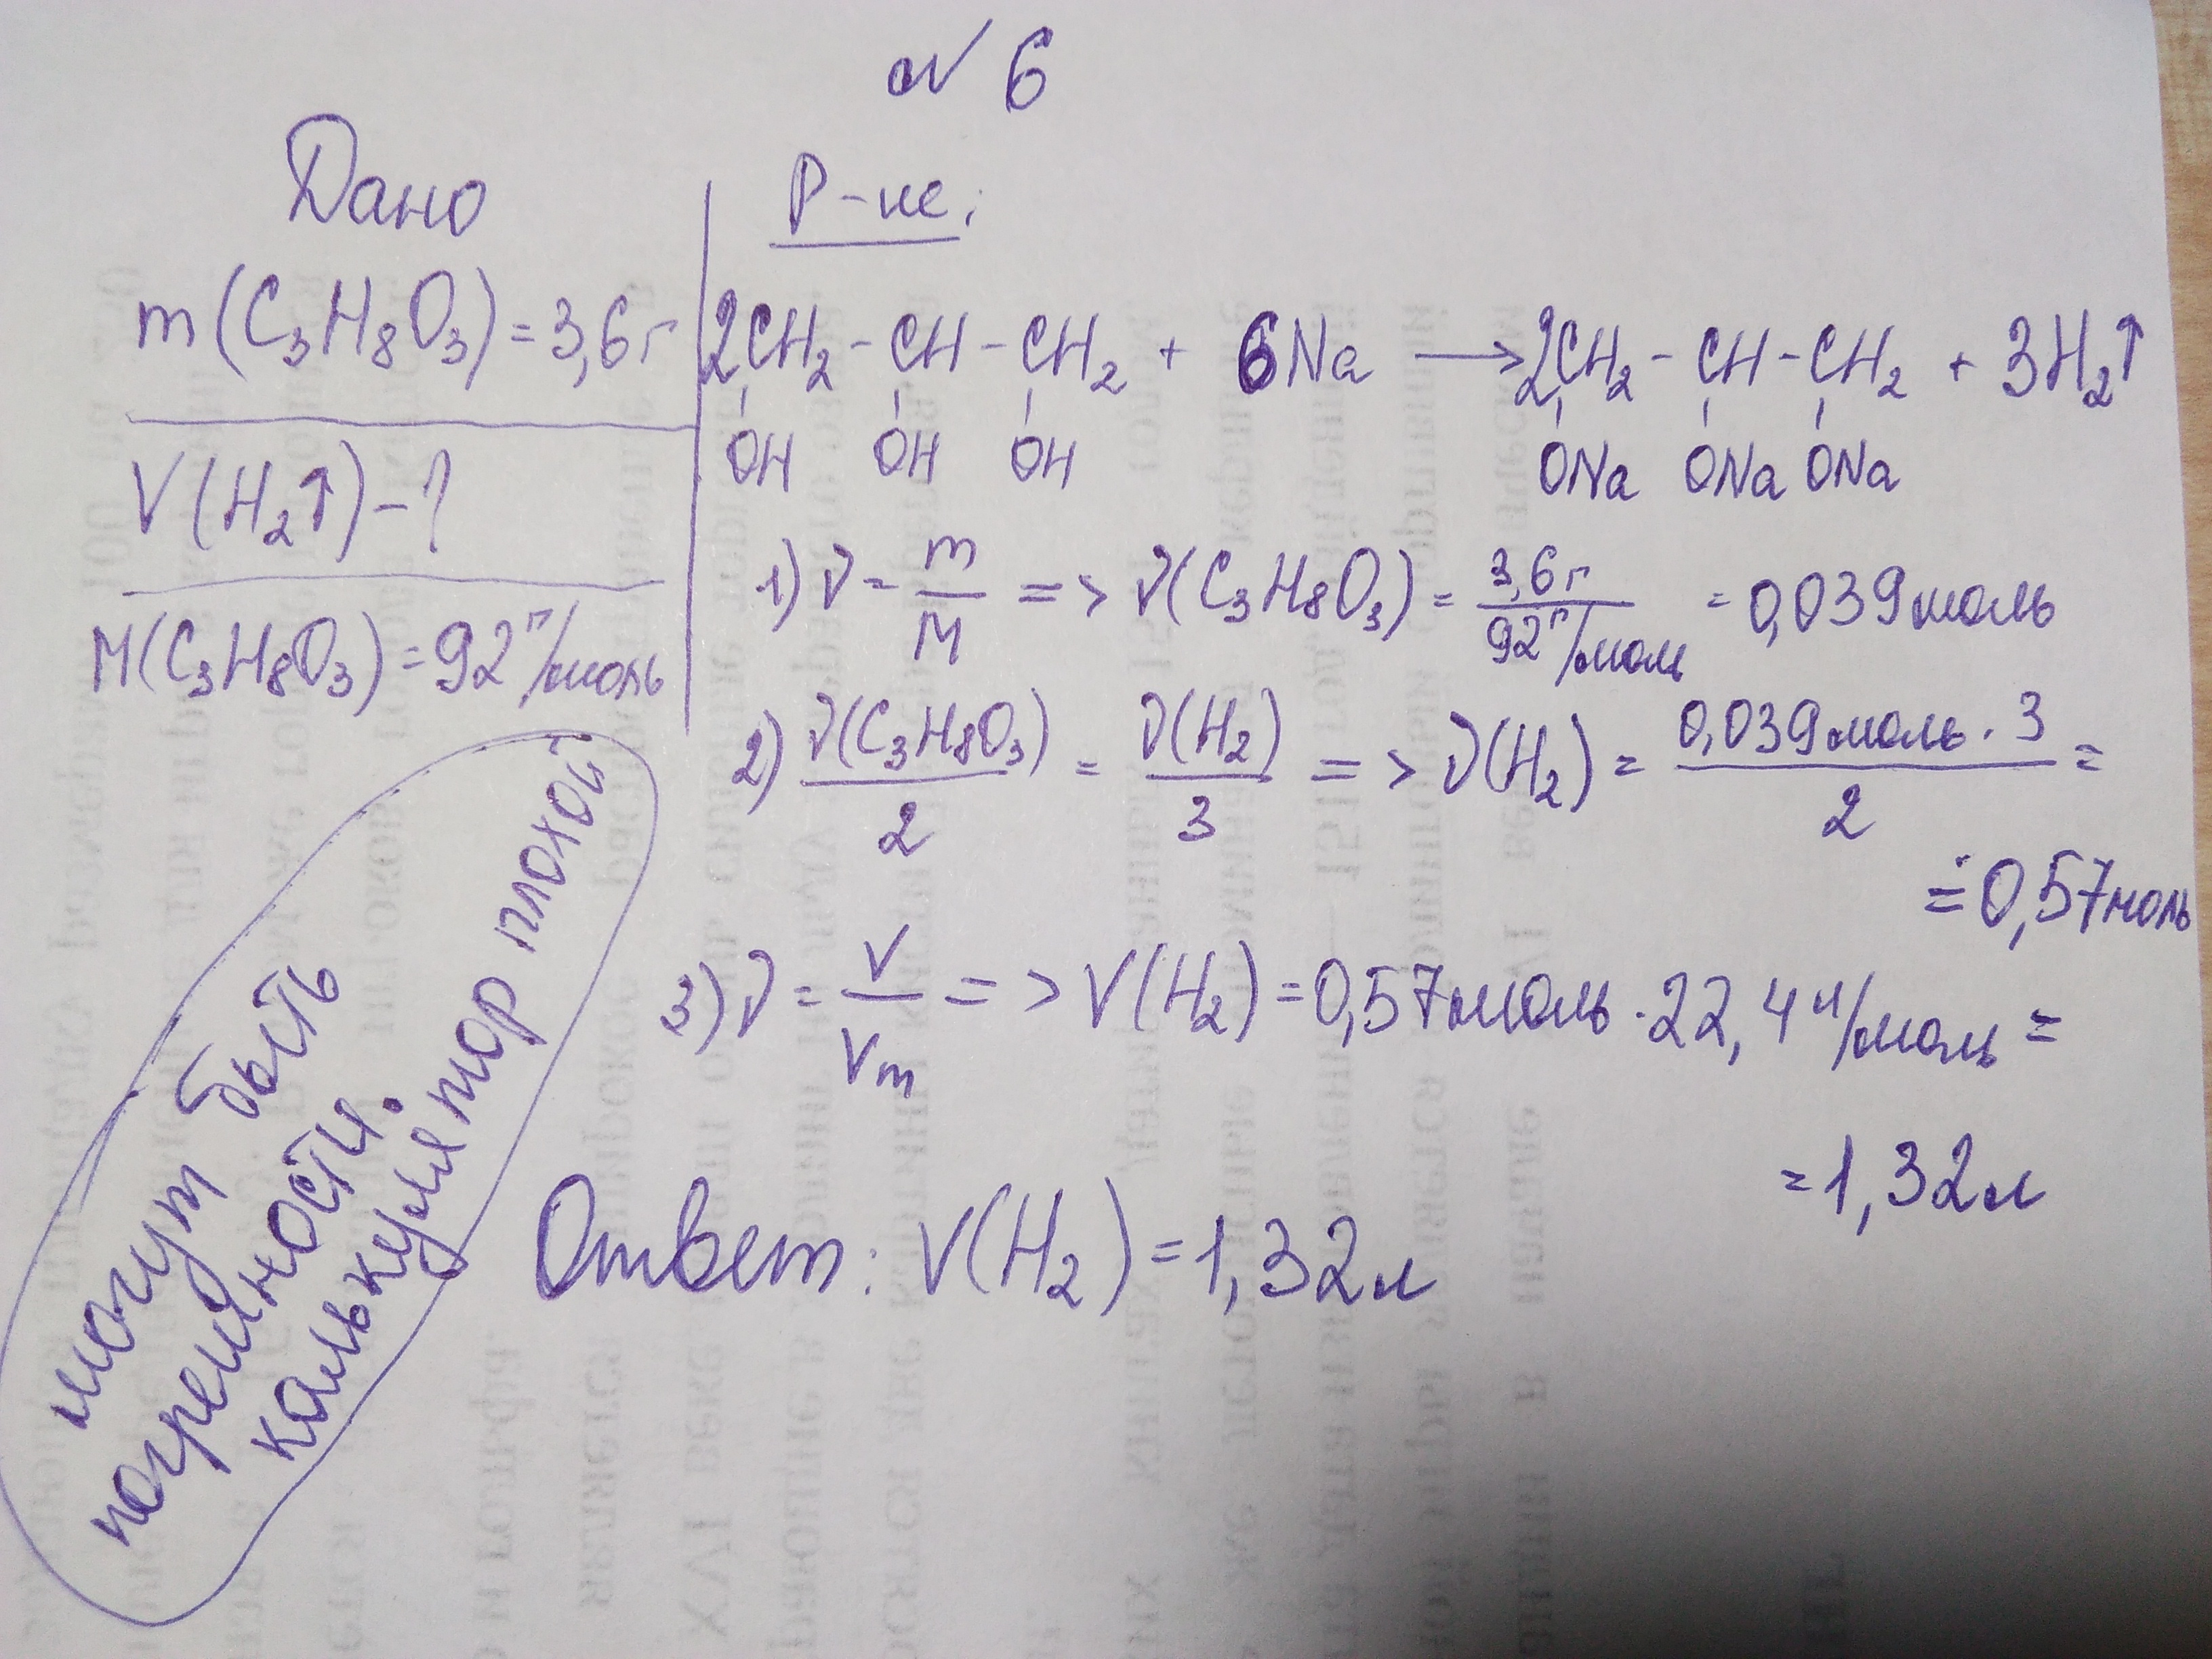 № 6
Дано
m(C₃H₈O₃)=3,6г
V(H₂↑)-?
M(C₃H₈O₃)=92г/моль
Р-ие:
2CH₂-CH-CH₂ + 6Na → 2CH₂-CH-CH₂ + 3H₂↑
OH OH OH ONa ONa ONa
1) ν = m/M => ν(C₃H₈O₃) = 3,6г/92г/моль = 0,039моль
2) ν(C₃H₈O₃)/2 = ν(H₂)/3 => ν(H₂) = 0,039моль · 3/2 =
= 0,57моль
3) ν = V/Vm => V(H₂) = 0,57моль · 22,4л/моль =
= 1,32л
Ответ: V(H₂) = 1,32л
могут быть
погрешности.
калькулятор плохой